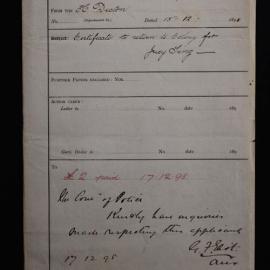 FROM THE H Deacon
No. (Department &c.) Dated 15 . 12 . 189
SUBJECT Certificate to return to Colony for
Joey Fong
FURTHER PAPERS ENCLOSED: NOS.
ACTION TAKEN:
Letter to No. Dated 189
Govt. Order to No. Dated 189
To
£2 paid 17.12.95
The Com^r of Police
Kindly have inquiries
made respecting this applicant
G F Eliot
17 12 95